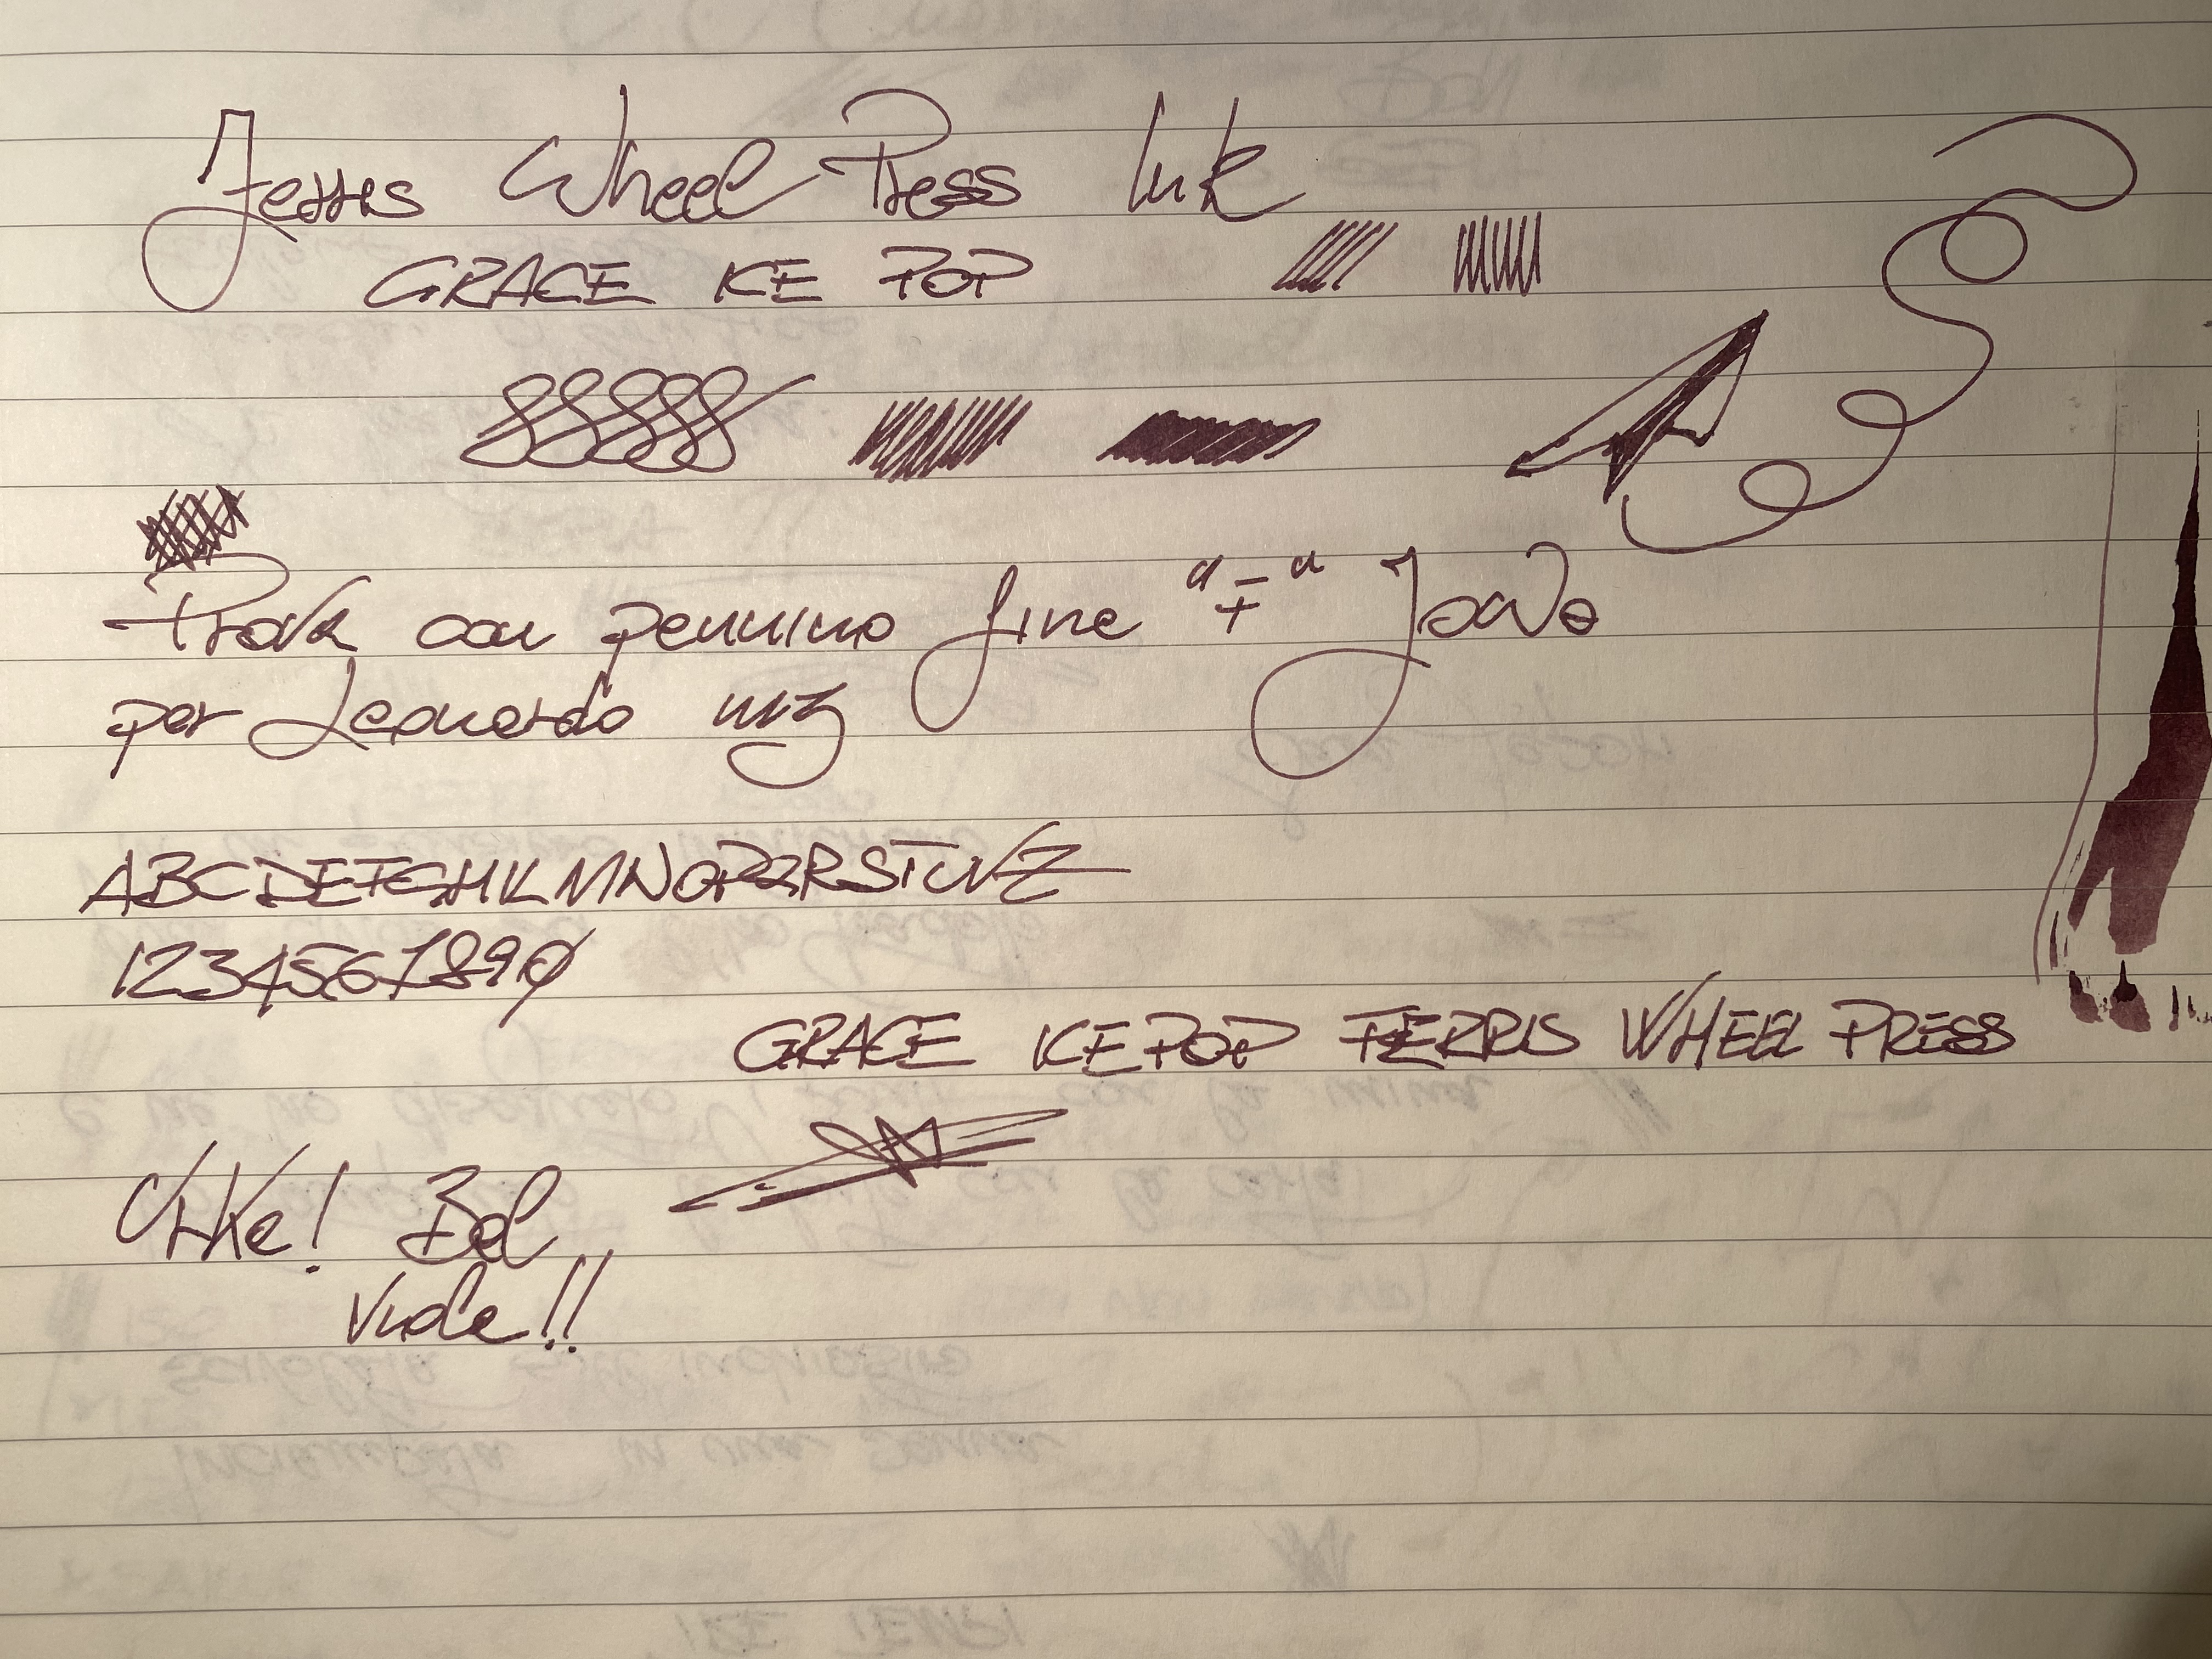 Ferris Wheel Press Ink
GRACE ICE POP
Prova con pennino fine "F" Jowo
per Leonardo mz
ABCDEFGHILMNOPQRSTUVZ
1234567890
GRACE ICE POP FERRIS WHEEL PRESS
Bel